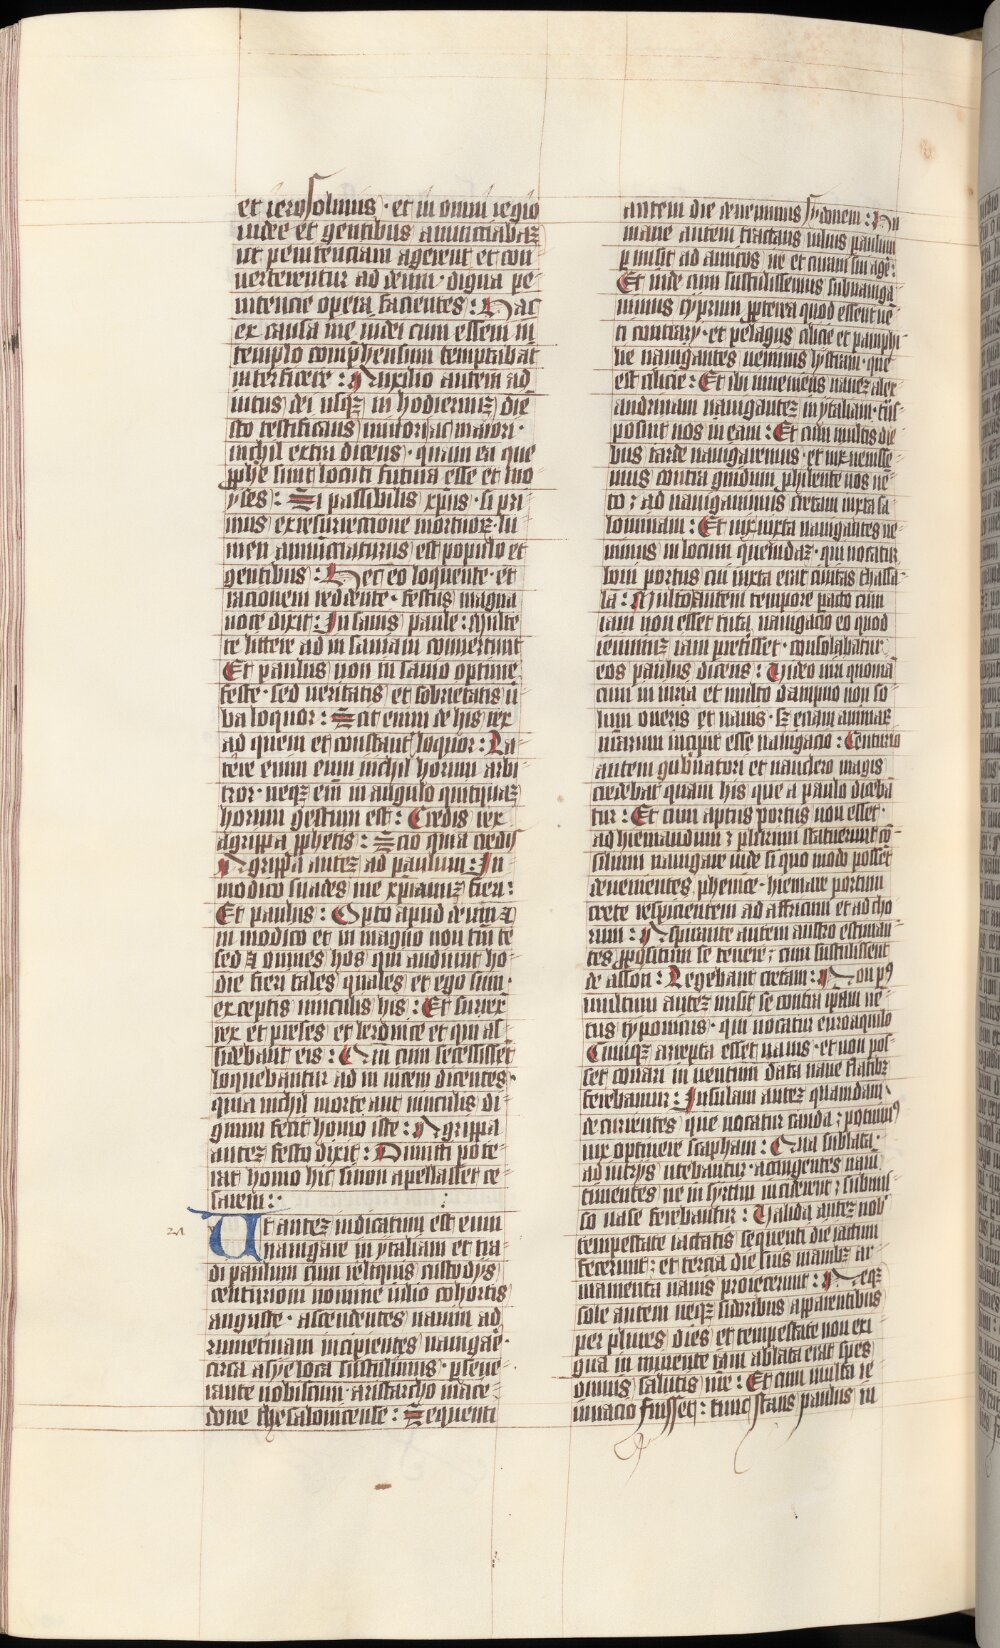 et ierosolimis · et in omni regio
iudee et gentibus annunciabaꝫ
ut penitenciam agerent et con
verterentur ad deum · digna pe
nitencie opera facientes : Hac
ex causa me iudei cum essem in
templo comp̄hensum temptabāt
interficere : Auxilio autem ad
iutus dei usqꝫ in hodiernuꝫ diē
sto testificans minori ac maiori ·
nichil extra dicens · quam ea que
ꝓphe sunt locuti futura esse et mo
yses : Si passibilis xp̄us · si pri
mus ex resurrectione mortuoꝝ · lu
men annunciaturus est populo et
gentibus : Hec eo loquente · et
racionem reddente · festus magna
voce dixit : Insanis paule : Multe
te littere ad insaniam convertunt
Et paulus non insanio optime
feste · sed veritatis et sobrietatis ū
ba loquor : Scit enim de his rex
ad quem et constanter loquor : La
tere enim eum nichil horum arbi
tror · neqꝫ em̄ in angulo quitquaꝫ
horum gestum est : Credis rex
agrippa ꝓphetis : Scio quia credis
Agrippa auteꝫ ad paulum : In
modico suades me xp̄ianuꝫ fieri :
Et paulus : Opto apud deum et
in modico et in magno non tm̄ te
sed et omnes hos qui audiunt ho
die fieri tales quales et ego sum ·
exceptis vinculis his : Et surrex̄
rex et preses et bernice et qui as
sidebant eis : Et cum secessissēt
loquebantur ad invicem dicentes ·
quia nichil morte aut vinculis di
gnum fecit homo iste : Agrippa
auteꝫ festo dixit : Dimitti pote
rat homo hic si non apellasset ce
sarem :
Ut auteꝫ iudicatum est eum
navigare in ytaliam et tra
di paulum cum reliquis custodys
centurioni nomine iulio cohortis
auguste · ascendentes navim ad
rumetinam incipientes navigaē ·
circa asye loca sustulimus · pseve
rante nobiscum · aristarcho mace
done thesalonicense : Sequenti
autem die devenimus sydonem : Hu
mane autem tractans iulius paulum
pmisit ad amicos ire et curam sui agē :
Et inde cum sustulissemus subnaviga
vimus cyprum ꝓpterea quod essent vē
ti contrary · et pelagus cilicie et pamphi
lie navigantes venimus lystram · que
est cilicie : Et ibi inveniens naveꝫ alex
andrinam naviganteꝫ in ytaliam · trās
posuit nos in eam : Et cum multis die
bus tarde navigaremus · et vix venisse
mus contra gnidum ꝓhibente nos vē
to ; ad navigavimus cretam iuxta sa
lomonam : Et vix iuxta navigantes ve
nimus in locum quemdaꝫ · qui vocatur
boni portus cui iuxta erat civitas thassa
la : Multo autem tempore pacto cum
iam non esset tuta navigacio eo quod
ieiuniuꝫ iam preterisset · consolabatur
eos paulus dicens : Video viri quoniā
cum iniuria et multo dampno non so
lum oneris et navis · sꝫ eciam animaꝝ
nr̄arum incipit esse navigacio : Centurio
autem gubnatori et nauclero magis
credebat quam his que a paulo diceba
tur : Et cum aptus portus non esset ·
ad hiemandum ; plurimi statuerunt cō
silium navigare inde si quo modo possēt
devenientes phenice · hiemare portum
crete respicientem ad affricum et ad cho
rum : Aspirante autem austro estiman
tes ꝓpositum se tenere ; cum sustulissent
de asson : Legebant cretam : Non pꝰ
multum auteꝫ misit se contra ipsam vē
tus typonicus · qui vocatur euroaquilo
Cumqꝫ arrepta esset navis · et non pos
set conari in ventum data nave flatibꝫ
ferebamur : Insulam auteꝫ quamdam
decurrentes que vocatur cauda ; potuimꝰ
vix optinere scapham : Qua sublata ·
adiutrys utebantur · accingentes navī
timentes ne in syrtim inciderent ; submis
so vase ferebantur : Valida auteꝫ nob̄
tempestate iactatis sequenti die iactum
fecerunt : et tercia die suis manibꝫ ar
mamenta navis proiecerunt : Neqꝫ
sole autem neqꝫ sideribus apparentibus
per plures dies et tempestate non exi
gua in minente iam ablata erat spes
omnis salutis nr̄e : Et cum multa ie
iunacio fuisset : tunc stans paulus in